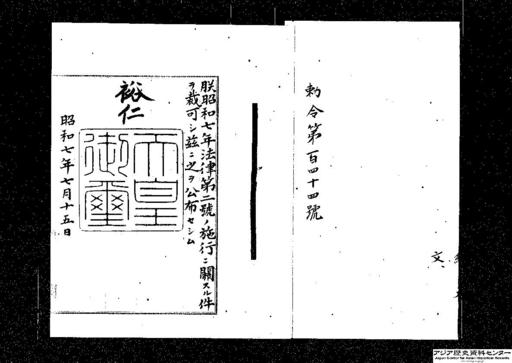 勅令第百四十四號
朕昭和七年法律第二號ノ施行ニ關スル件
ヲ裁可シ茲ニ之ヲ公布セシム
裕仁
天皇
御璽
昭和七年七月十五日
文、
アジア歴史資料センター
Japan Center for Asian Historical Records